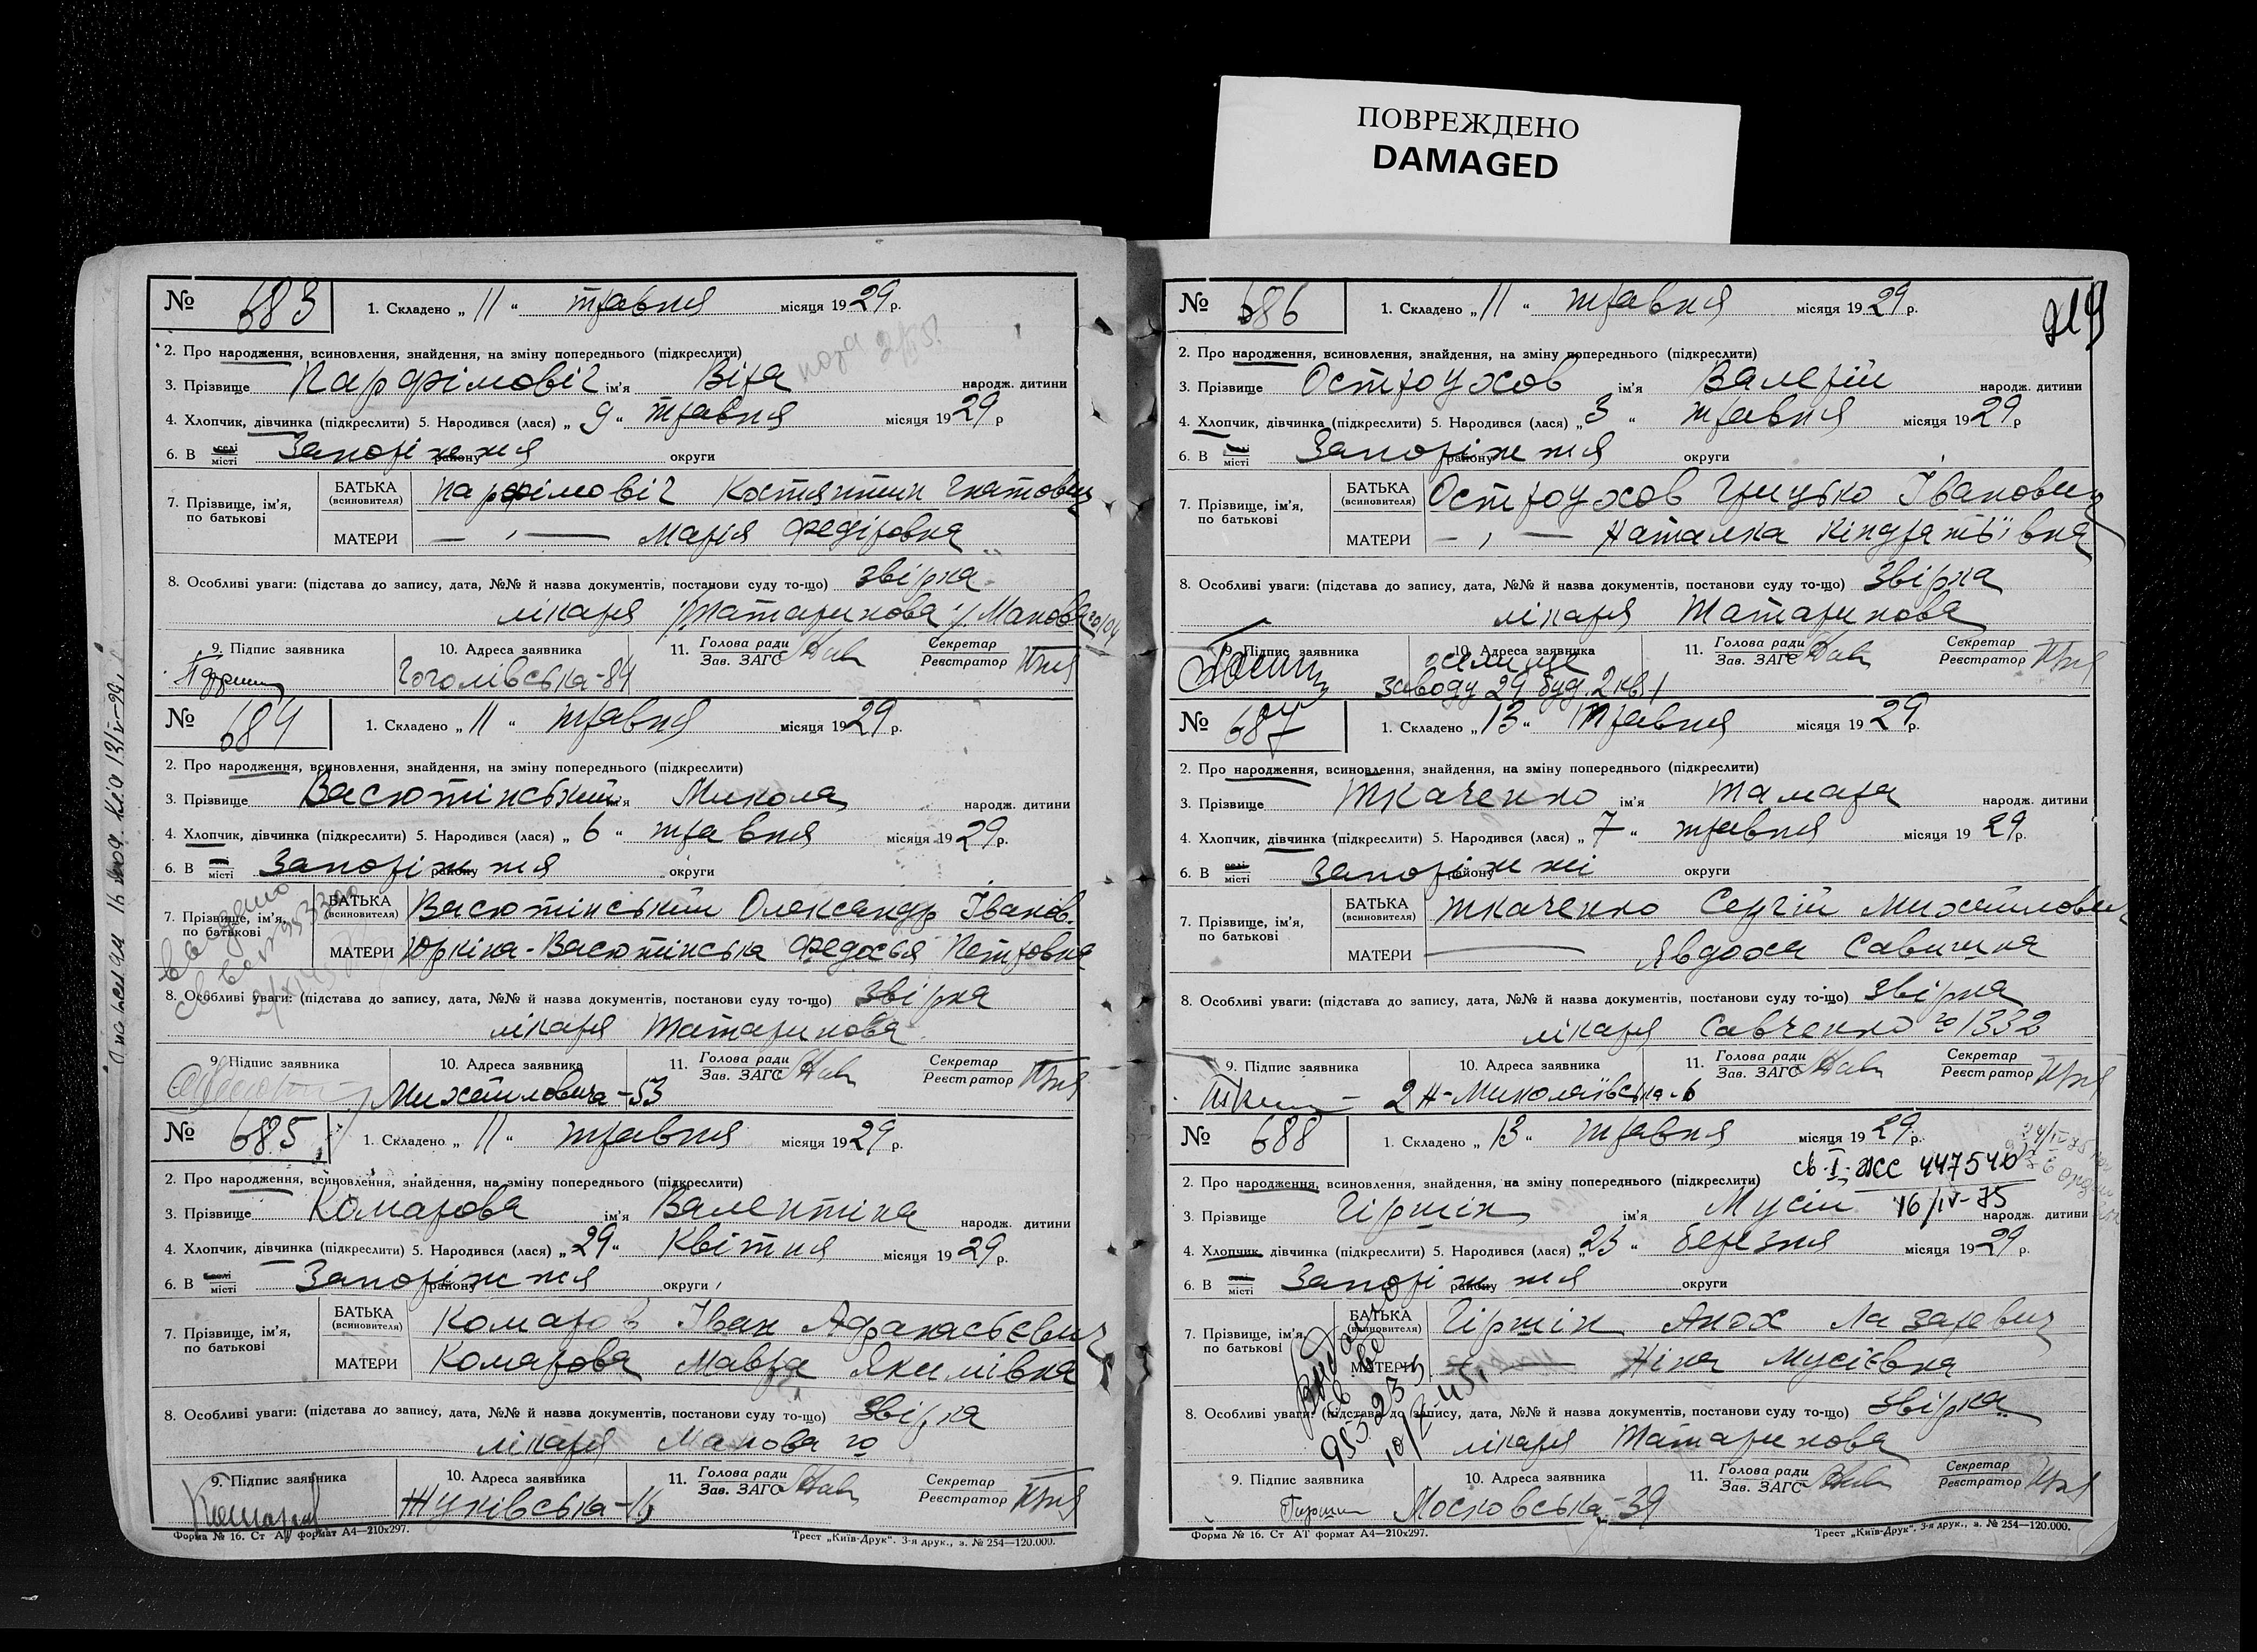 ПОВРЕЖДЕНО
DAMAGED
№ 683 1. Складено „ 11 “ травня місяця 19 29 р.
2. Про народження, всиновлення, знайдення, на зміну попереднього (підкреслити)
3. Прізвище Парфімовіч ім'я Віра народж. дитини
4. Хлопчик, дівчинка (підкреслити) 5. Народився (лася) „ 9 “ травня місяця 19 29 р
6. В селі місті Запоріжжя району округи
7. Прізвище, ім'я, по батькові
БАТЬКА (всиновителя) Парфімовіч Костянтин Гнатович
МАТЕРИ — „ — Марія Федіровна
8. Особливі уваги: (підстава до запису, дата, №№ й назва документів, постанови суду то-що) звірка
лікаря Татаринова Манова
9. Підпис заявника 10. Адреса заявника 11. Голова ради Зав. ЗАГС Секретар Реєстратор
Гоголівська-84
№ 684 1. Складено „ 11 “ травня місяця 19 29 р.
2. Про народження, всиновлення, знайдення, на зміну попереднього (підкреслити)
3. Прізвище Васютінський ім'я Микола народж. дитини
4. Хлопчик, дівчинка (підкреслити) 5. Народився (лася) „ 6 “ травня місяця 19 29 р.
6. В селі місті Запоріжжя району округи
7. Прізвище, ім'я, по батькові
БАТЬКА (всиновителя) Васютінський Олександр Іванов.
МАТЕРИ Юркіна-Васютінська Федосья Петровна
8. Особливі уваги: (підстава до запису, дата, №№ й назва документів, постанови суду то-що) звірка
лікаря Татаринова
9. Підпис заявника 10. Адреса заявника 11. Голова ради Зав. ЗАГС Секретар Реєстратор
Михайловича-53
№ 685 1. Складено „ 11 “ травня місяця 19 29 р.
2. Про народження, всиновлення, знайдення, на зміну попереднього (підкреслити)
3. Прізвище Комарова ім'я Валентіна народж. дитини
4. Хлопчик, дівчинка (підкреслити) 5. Народився (лася) „ 29 “ Квітня місяця 19 29 р.
6. В селі місті Запоріжжя району округи
7. Прізвище, ім'я, по батькові
БАТЬКА (всиновителя) Комаров Іван Афанасьєвич
МАТЕРИ Комарова Мавра Якимівна
8. Особливі уваги: (підстава до запису, дата, №№ й назва документів, постанови суду то-що) звірка
лікаря Манова
9. Підпис заявника 10. Адреса заявника 11. Голова ради Зав. ЗАГС Секретар Реєстратор
Жуківська-16
Форма № 16. Ст АТ формат А4—210х297. Трест „Київ-Друк“. 3-я друк., з. № 254—120.000.
№ 686 1. Складено „ 11 “ травня місяця 19 29 р.
2. Про народження, всиновлення, знайдення, на зміну попереднього (підкреслити)
3. Прізвище Остроухов ім'я Валерій народж. дитини
4. Хлопчик, дівчинка (підкреслити) 5. Народився (лася) „ 3 “ травня місяця 19 29 р
6. В селі місті Запоріжжя району округи
7. Прізвище, ім'я, по батькові
БАТЬКА (всиновителя) Остроухов Грицько Іванович
МАТЕРИ — „ — Наталка Кіндратьївна
8. Особливі уваги: (підстава до запису, дата, №№ й назва документів, постанови суду то-що) Звірка
лікаря Татаринова
9. Підпис заявника 10. Адреса заявника 11. Голова ради Зав. ЗАГС Секретар Реєстратор
оселище
заводу 29 буд. 2 кв. 1
№ 687 1. Складено „ 13 “ травня місяця 19 29 р.
2. Про народження, всиновлення, знайдення, на зміну попереднього (підкреслити)
3. Прізвище Ткаченко ім'я Тамара народж. дитини
4. Хлопчик, дівчинка (підкреслити) 5. Народився (лася) „ 7 “ травня місяця 19 29 р.
6. В селі місті Запоріжжі району округи
7. Прізвище, ім'я, по батькові
БАТЬКА (всиновителя) Ткаченко Сергій Михайлович
МАТЕРИ — Явдоха Савишна
8. Особливі уваги: (підстава до запису, дата, №№ й назва документів, постанови суду то-що) звірка
лікаря Савченко № 1332
9. Підпис заявника 10. Адреса заявника 11. Голова ради Зав. ЗАГС Секретар Реєстратор
2 Н-Миколаївська-6
№ 688 1. Складено „ 13 “ травня місяця 19 29 р.
св. I-ЖС 447540
16/IV-75
2. Про народження, всиновлення, знайдення, на зміну попереднього (підкреслити)
3. Прізвище Гіршін ім'я Мусій народж. дитини
4. Хлопчик, дівчинка (підкреслити) 5. Народився (лася) „ 25 “ березня місяця 19 29 р.
6. В селі місті Запоріжжя району округи
7. Прізвище, ім'я, по батькові
БАТЬКА (всиновителя) Гіршін Анох Лазаревич
МАТЕРИ — Ніна Мусієвна
8. Особливі уваги: (підстава до запису, дата, №№ й назва документів, постанови суду то-що) звірка
лікаря Татаринова
9. Підпис заявника 10. Адреса заявника 11. Голова ради Зав. ЗАГС Секретар Реєстратор
Московська-39
Форма № 16. Ст АТ формат А4—210х297. Трест „Київ-Друк“. 3-я друк., з. № 254—120.000.